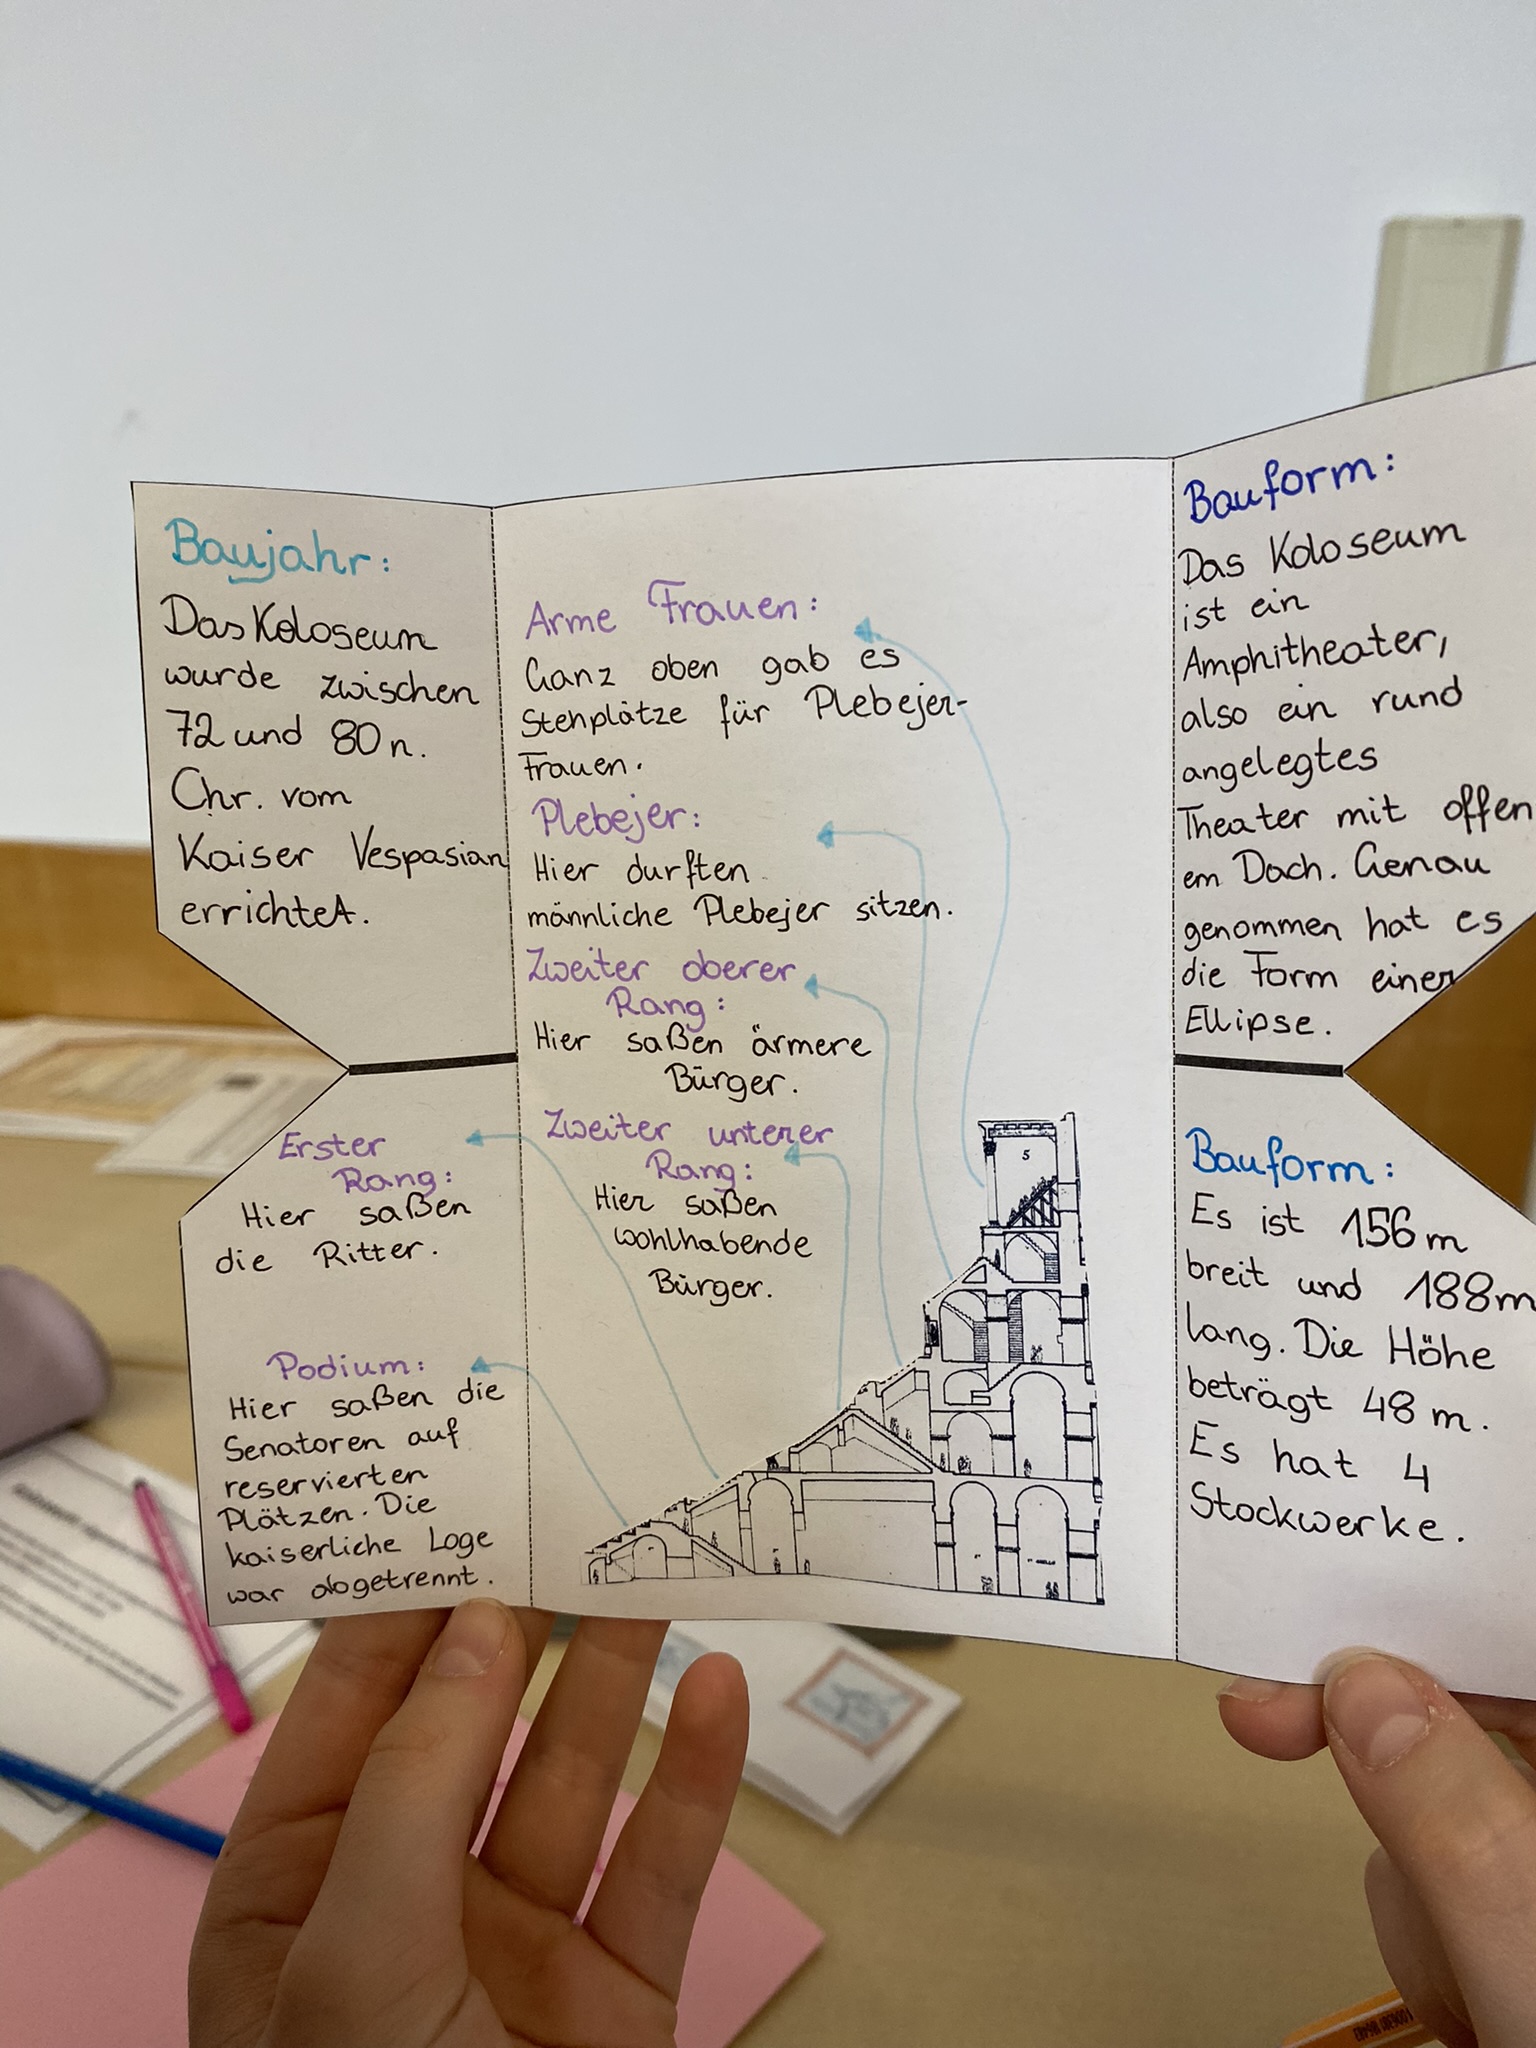 Baujahr:
Das Koloseum
wurde zwischen
72 und 80 n.
Chr. vom
Kaiser Vespasian
errichtet.
Erster
Rang:
Hier saßen
die Ritter.
Podium:
Hier saßen die
Senatoren auf
reservierten
Plätzen. Die
kaiserliche Loge
war abgetrennt.
Arme Frauen:
Ganz oben gab es
Stehplätze für Plebejer-
Frauen.
Plebejer:
Hier durften
männliche Plebejer sitzen.
Zweiter oberer
Rang:
Hier saßen ärmere
Bürger.
Zweiter unterer
Rang:
Hier saßen
wohlhabende
Bürger.
5
Bauform:
Das Koloseum
ist ein
Amphitheater,
also ein rund
angelegtes
Theater mit offen
em Dach. Genau
genommen hat es
die Form einer
Ellipse.
Bauform:
Es ist 156m
breit und 188m
lang. Die Höhe
beträgt 48 m.
Es hat 4
Stockwerke.